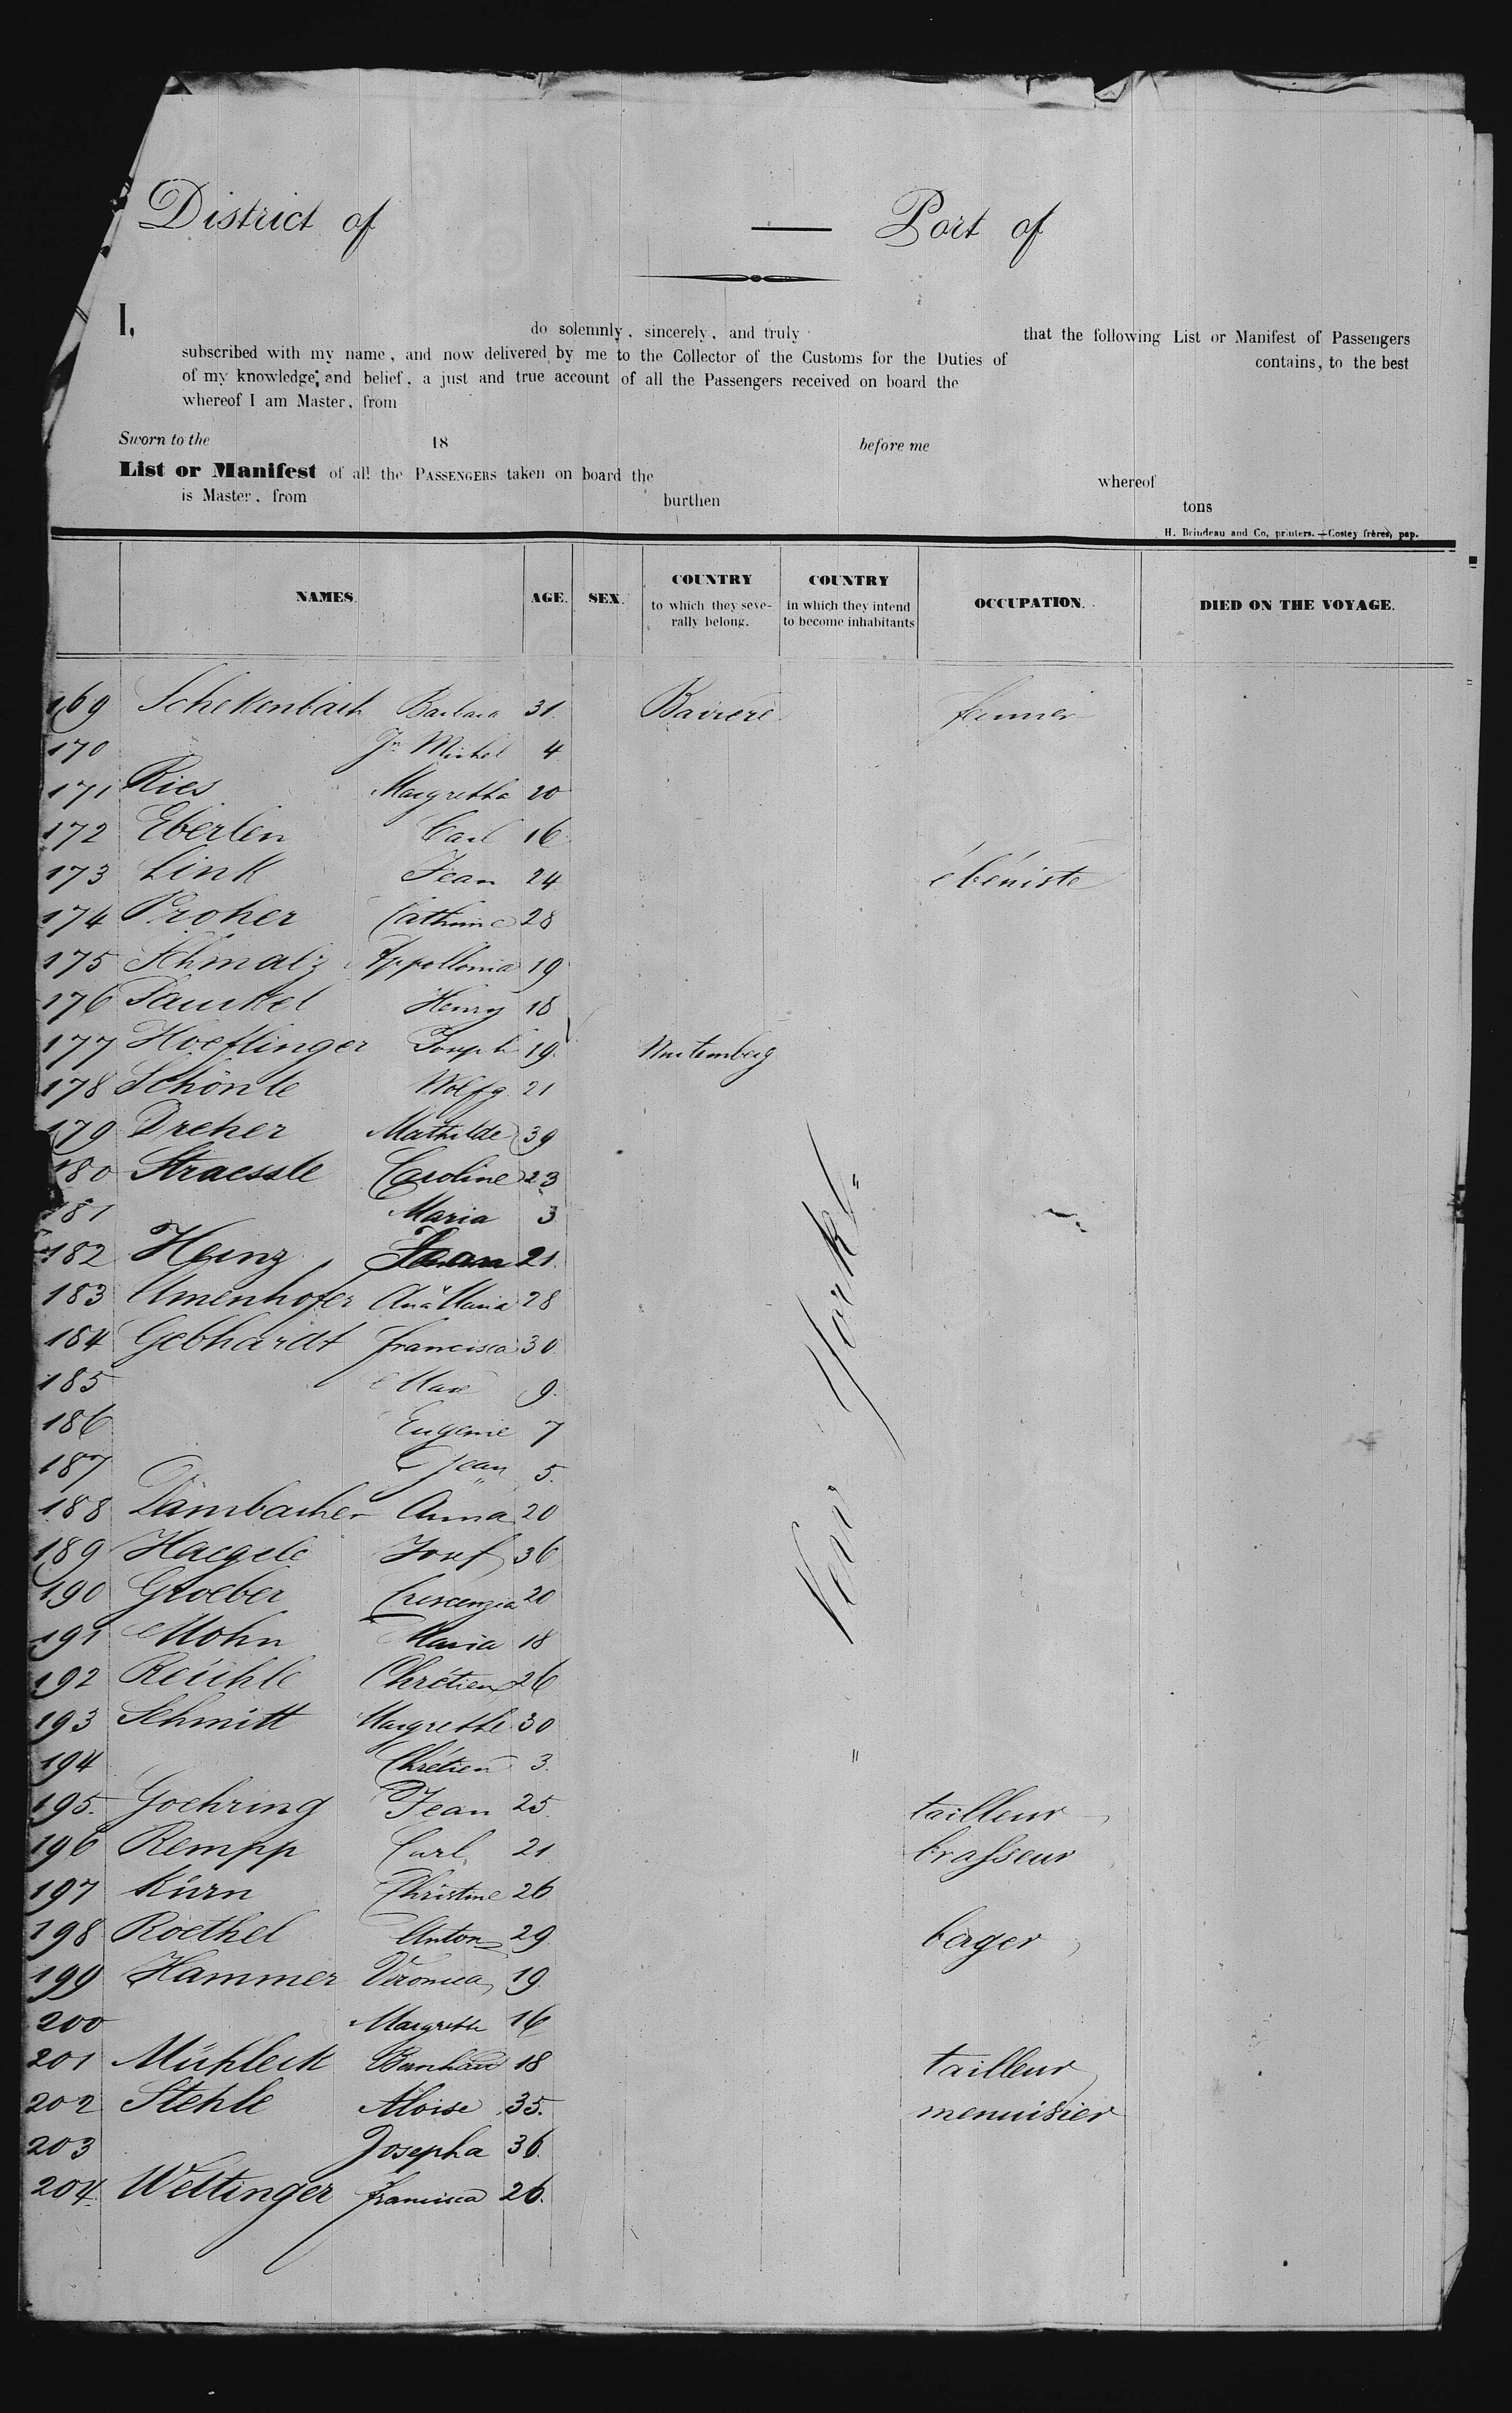 District of — Port of
I, do solemnly, sincerely, and truly that the following List or Manifest of Passengers
subscribed with my name, and now delivered by me to the Collector of the Customs for the Duties of contains, to the best
of my knowledge and belief, a just and true account of all the Passengers received on board the
whereof I am Master, from
Sworn to the 18 before me
List or Manifest of all the PASSENGERS taken on board the whereof
is Master, from burthen tons
H. Brindeau and Co, printers. — Costey frères, pap.
NAMES. AGE. SEX. COUNTRY to which they seve- rally belong. COUNTRY in which they intend to become inhabitants OCCUPATION. DIED ON THE VOYAGE.
169 Schekenbach Barbara 31. Baviere
170 Jn Michel 4
171 Ries Margretha 20
172 Eberlen Carl 16
173 Link Jean 24 ébéniste
174 Proher Cathrine 28
175 Schmalz Appollonia 19
176 Henry 18
177 Hoeflinger Joseph 19. Wurtemberg
178 Schönle Wolfg. 21
179 Dreher Mathilde 39
180 Straessle Caroline 23
181 Maria 3
182 Heinz Jean 21.
183 Umenhofer Ana Maria 28
184 Gebhardt Francisca 30
185 Max 9.
186 Eugenie 7
187 Jean 5.
188 Dambacher Anna 20
189 Haegele Josef 36
190 Groeber Crescenzia 20
191 Mohn Maria 18
192 Reühle Chrétien 26
193 Schmitt Margrethe 30
194 Chrétien 3.
195. Goehring Jean 25. tailleur
196 Rempp Carl 21 brasseur
197 Kürn Christine 26
198 Roethel Anton 29. berger
199 Hammer Veronica 19.
200 Margreth 16
201 Mühleck Bernhard 18 tailleur
202 Stehle Aloise 35. menuisier
203 Josepha 36.
204. Weltinger Francisca 26.
New York